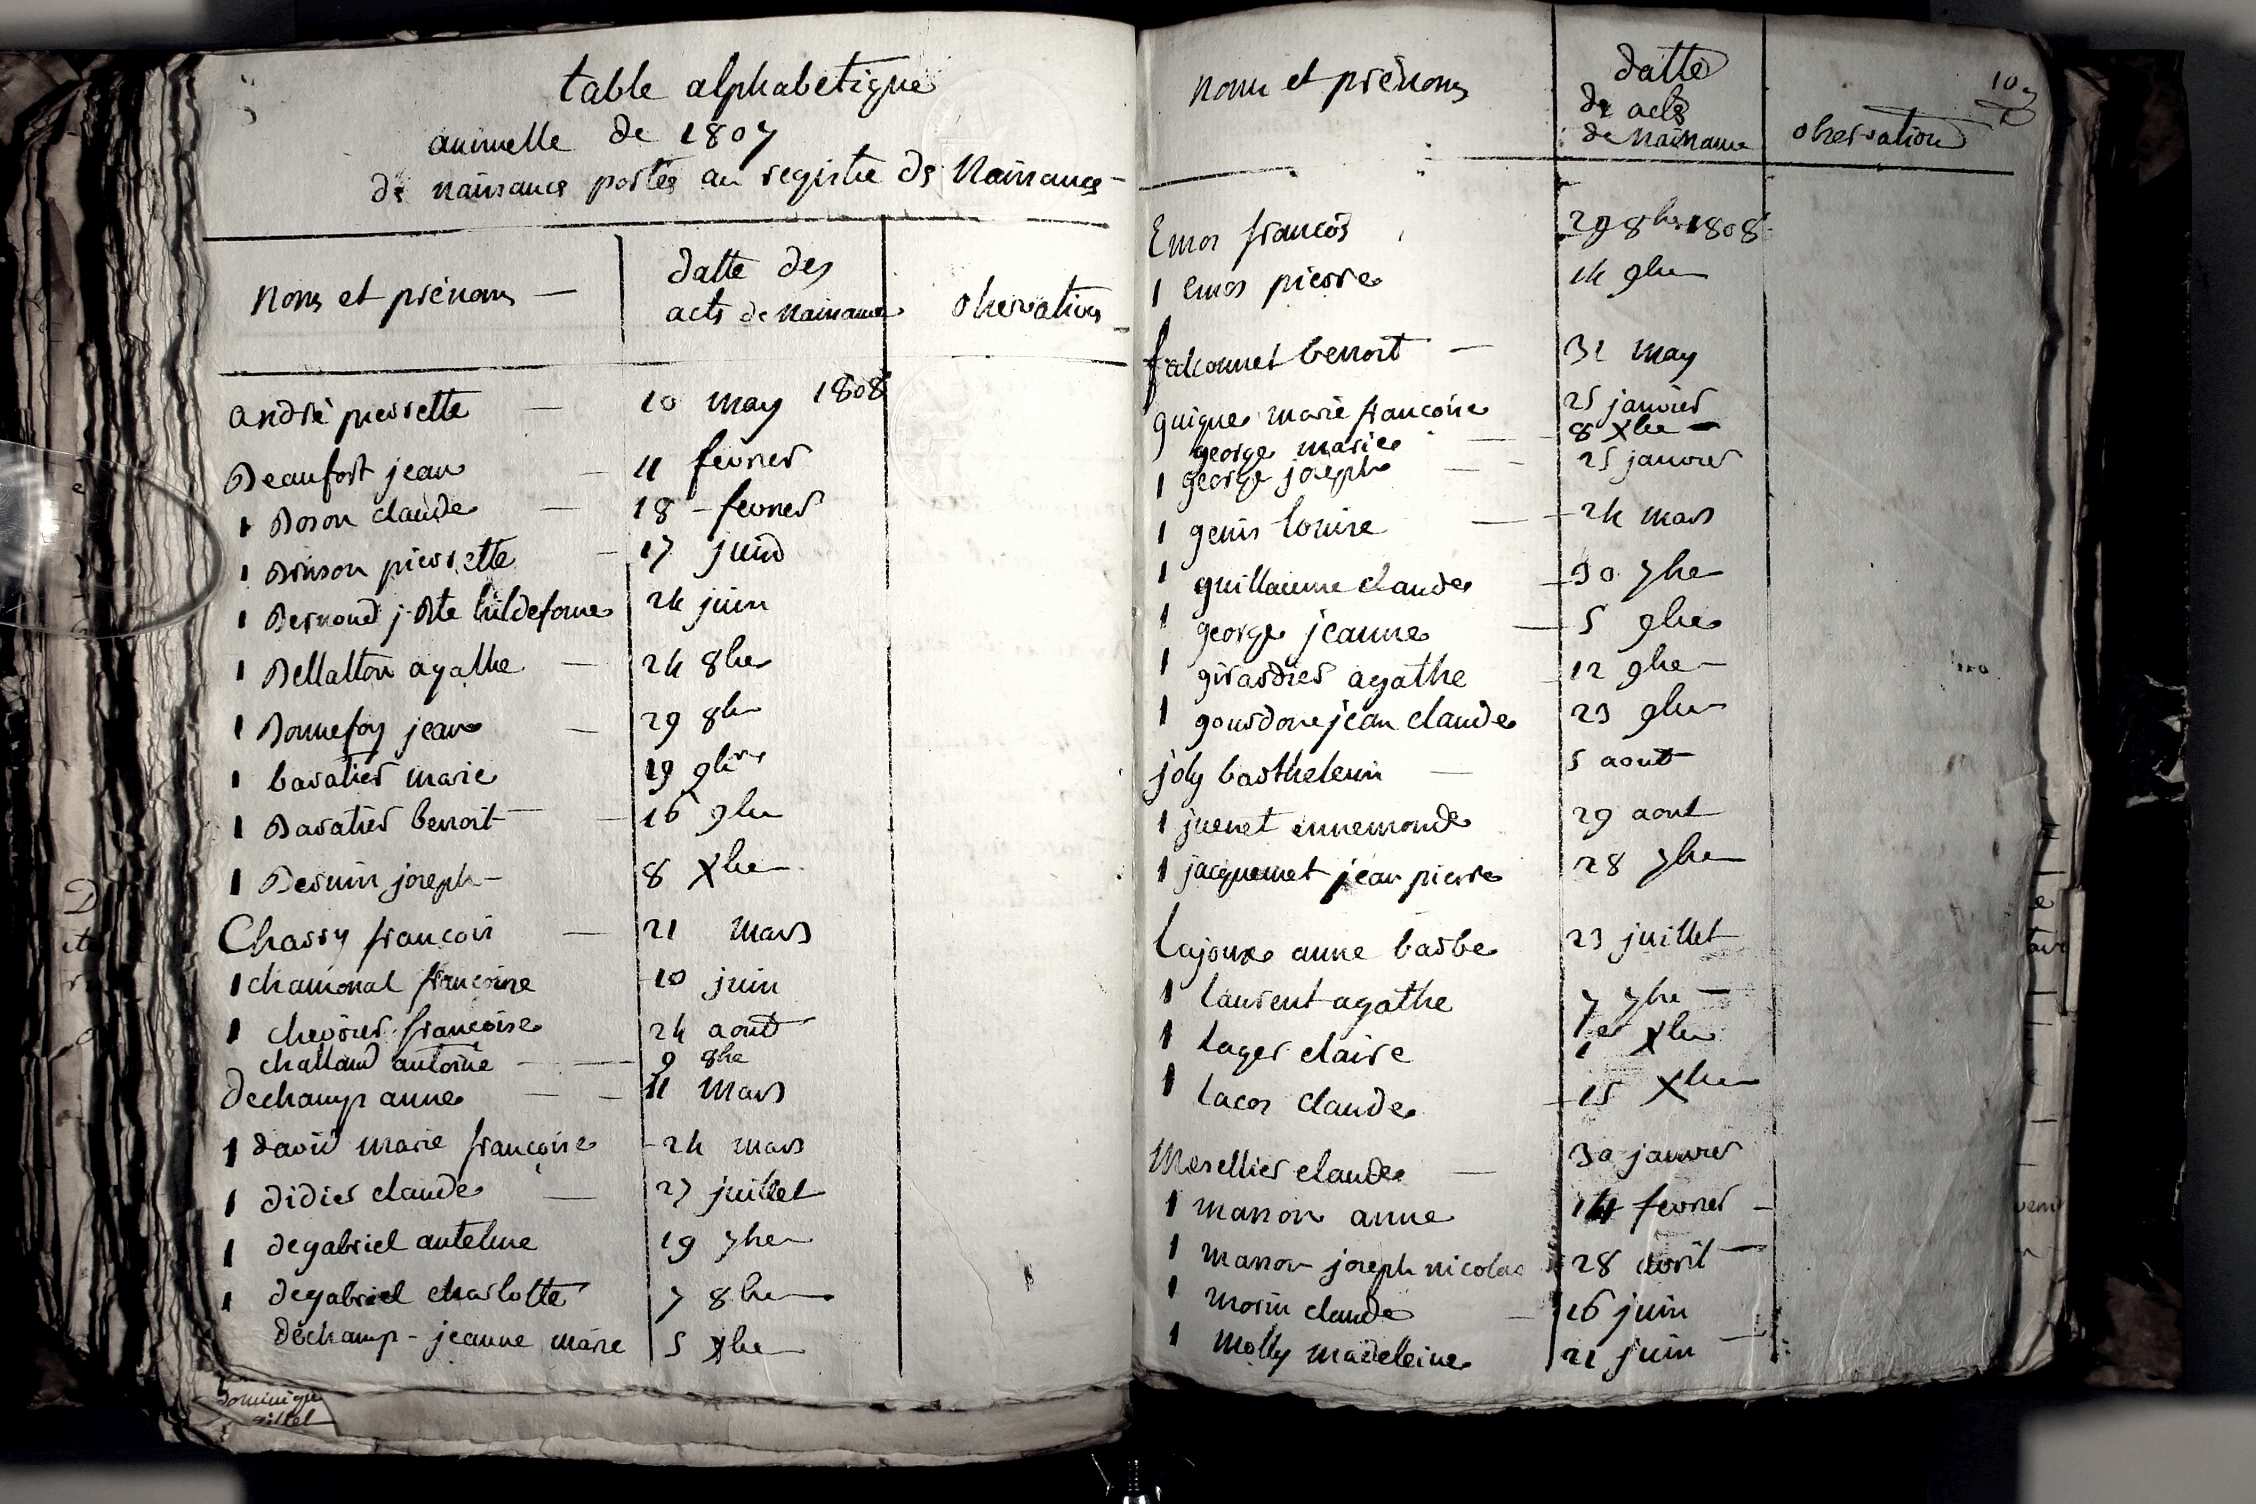 table alphabetique
annuelle de 1807
de naissance portés au registre de Naissance
Noms et prénoms — datte des
actes de naissance observations
andré pierrette — 10 may 1808
Beaufort jean — 11 fevrier
1 Boson claude — 18 - fevrier
1 Brison pierrette — 17 juin
1 Bernond j. Bte hildefonse 24 juin
1 Bellatton agathe — 24 8bre
1 Bonnefoy jean — 29 8bre
1 baratier marie 19 9bre
1 Baratier benoit — 16 9bre
1 Bernin joseph - 8 Xbre
Chassy françois — 21 mars
1 chamonal françoise 10 juin
1 chevrier françoise 24 aout
challand antoine — 9 8bre
Dechamp anne — 11 mars
1 david marie françoise - 24 mars
1 didier claude — 27 juillet
1 degabriel antelme 19 7bre
1 degabriel charlotte 7 8bre
dechamp - jeanne marie 5 Xbre
Dominique
millet
10
noms et prénoms datte
de acte
de naissance observation
Emor françois 29 8bre 1808
1 Emor pierre 14 9bre
falconnet benoit — 31 may
guigue marie françoise 25 janvier
george marie — 8 Xbre
1 george joseph — 25 janvier
1 genis louise — 24 mars
1 guillaume claude — 30 7bre
1 george jeanne — 5 9bre
1 girardier agathe 12 9bre
1 gourdone jean claude 23 9bre
joly barthelemi — 5 aout
1 juenet ennemonde 29 aout
1 jacquemet jean pierre 28 7bre
Lajoux anne barbe 23 juillet
1 laurent agathe 7 7bre
1 lager claire 1er Xbre
1 lacor claude — 15 Xbre
Merellier claude — 30 janvier
1 manon anne 14 fevrier
1 manon joseph nicolas 28 avril
1 morin claude — 16 juin
1 molly madeleine 21 juin